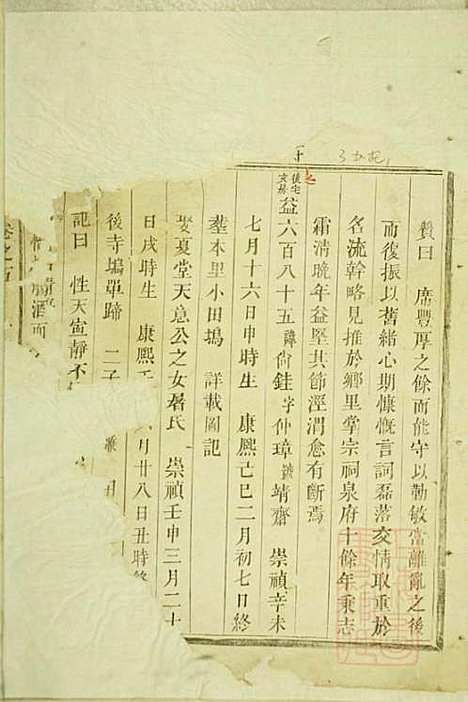 贊曰 席豐厚之餘而能守以勤敏當離亂之後
而復振以舊緒心期慷慨言詞磊落交情取重於
名流幹略見推於鄉里掌宗祠泉府十餘年秉志
霜清晚年益堅其節涇渭愈有斷焉
益六百八十五 諱尙銈 字仲璋 號靖齋 崇禎辛未
七月十六日申時生 康熙己巳二月初七日終
塟本里小田塢 詳載圖記
娶夏堂天意公之女屠氏 崇禎壬申三月二十
日戌時生 康熙 月廿八日丑時終
後寺塢單蹄 二子
記曰 性天寍靜不
酒而
卷之